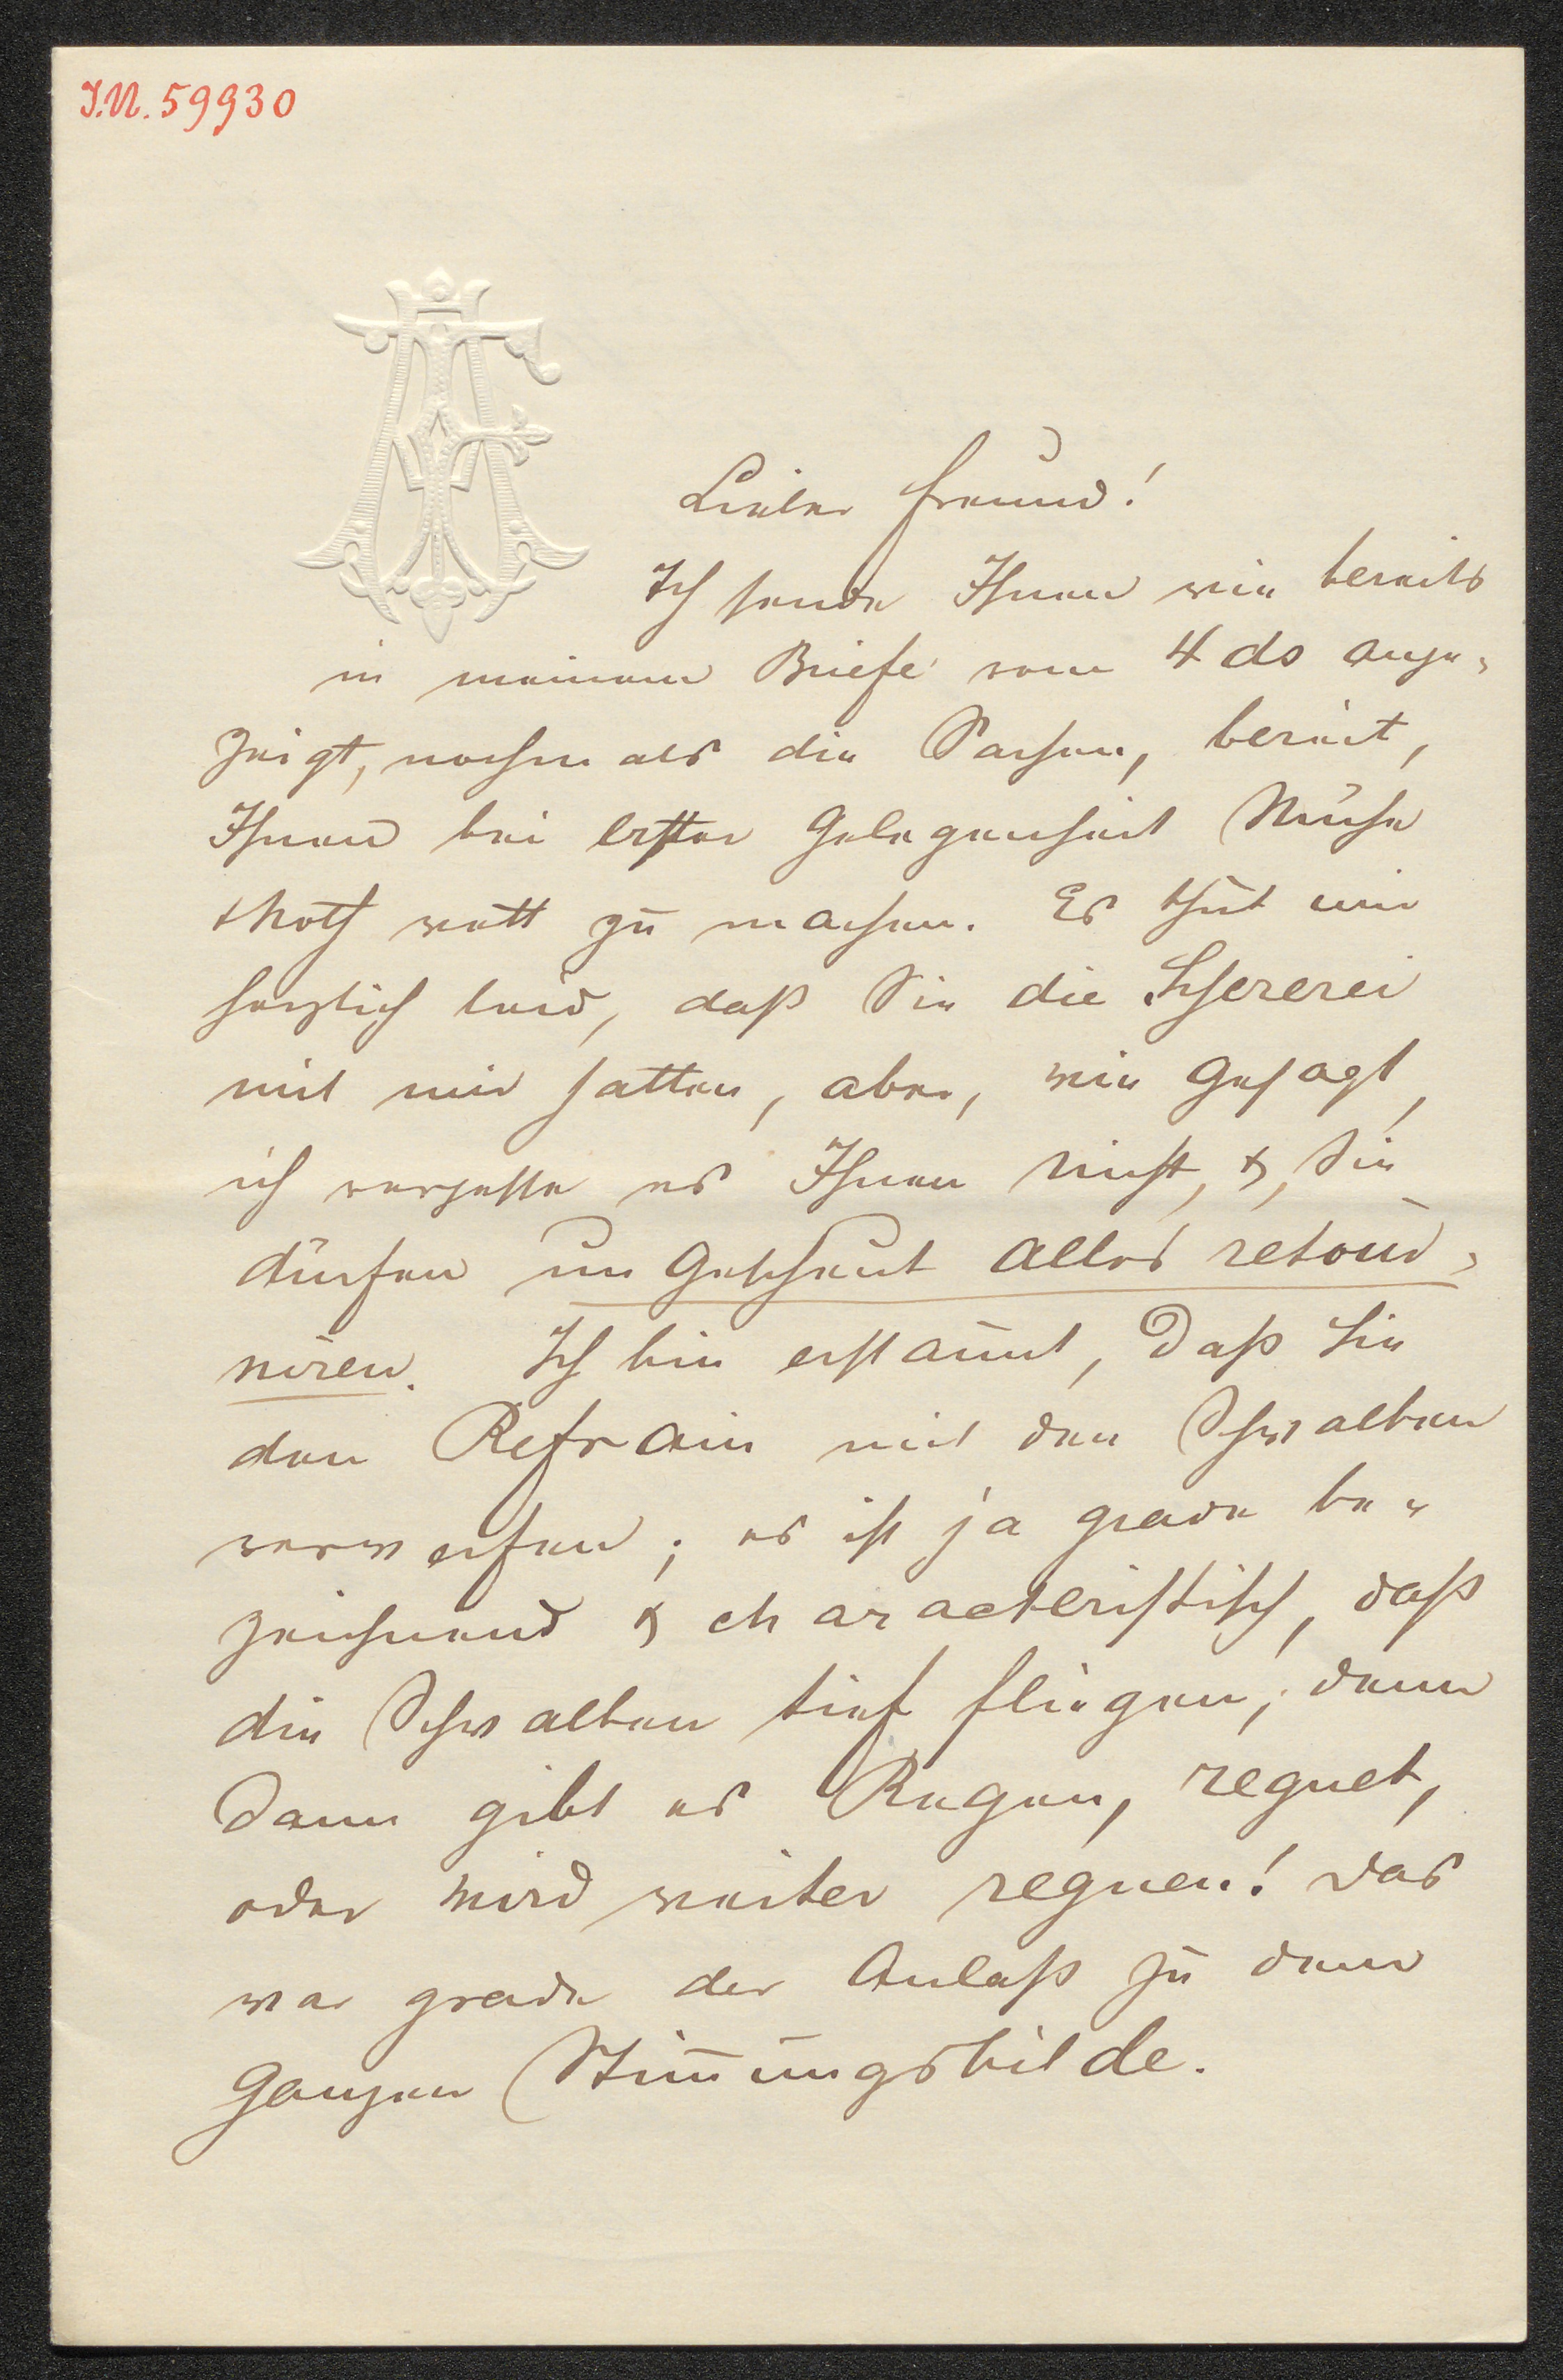 I.N. 59930
Lieber Freund!
Ich sende Ihnen wie bereits
in meinem Briefe vom 4 ds ange-
zeigt, nochmals die Sachen, bereit,
Ihnen bei erster Gelegenheit Mühe
& Noth wett zu machen. Es thut mir
herzlich leid, daß Sie die Schererei
mit mir hatten, aber, wie gesagt,
ich vergesse es Ihnen nicht, &, Sie
dürfen ungescheut alles retour-
niren. Ich bin erstaunt, daß Sie
den Refrain mit den Schwalben
verwerfen; es ist ja grade be-
zeichnend & characteristisch, daß
die Schwalben tief fliegen; denn
dann gibt es Regen, regnet,
oder wird weiter regnen! Das
war grade der Anlaß zu dem
ganzen Stim̄ungsbilde.